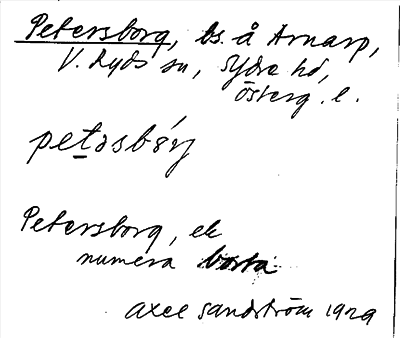 Petersborg, bs. å Arnarp,
V. Ryds sn, Ydre hd,
Österg. l.
petasbórj
Petersborg, ek
numera borta
Axel Sandström 1929